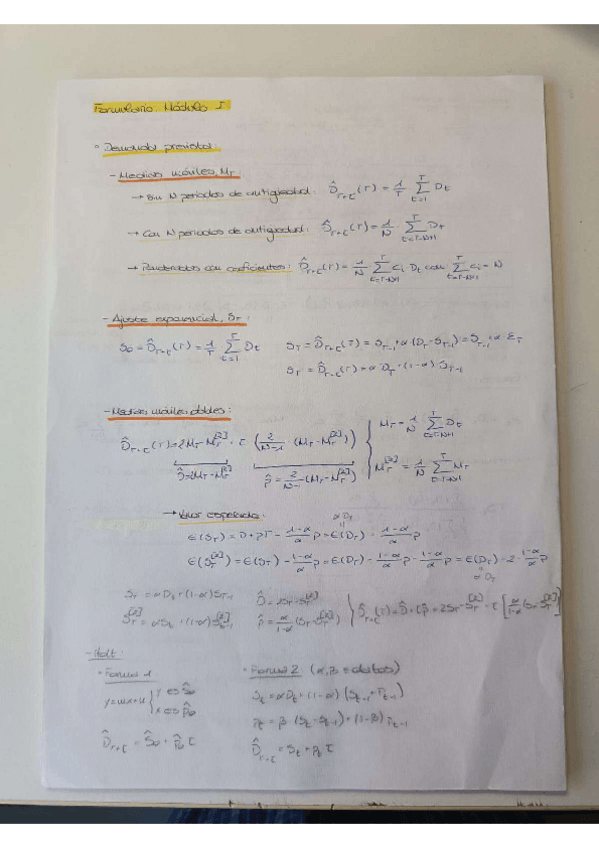 Formulario Módulo I
° Demanda prevista:
- Medias móviles, M_T
→ Sin N periodos de antigüedad: D̂_{T+τ}(T) = 1/T Σ_{t=1}^{T} D_t
→ Con N periodos de antigüedad: D̂_{T+τ}(T) = 1/N · Σ_{t=T-N+1}^{T} D_t
→ Ponderadas con coeficientes: D̂_{T+τ}(T) = 1/N Σ_{t=T-N+1}^{T} c_i · D_t con Σ_{t=T-N+1}^{T} c_i = N
- Ajuste exponencial, S_T:
S_0 = D̂_{T+τ}(T) = 1/T Σ_{t=1}^{T} D_t S_T = D̂_{T+τ}(T) = S_{T-1} + α (D_T - S_{T-1}) = S_{T-1} + α · E_T
S_T = D̂_{T+τ}(T) = α D_T + (1-α) · S_{T-1}
- Medias móviles dobles:
D̂_{T+τ}(T) = 2M_T - M_T^{[2]} + τ (2/(N-1) (M_T - M_T^{[2]})) { M_T = 1/N Σ_{t=T-N+1}^{T} D_t
D̂ = 2M_T - M_T^{[2]} p̂ = 2/(N-1) (M_T - M_T^{[2]}) M_T^{[2]} = 1/N Σ_{t=T-N+1}^{T} M_T
→ Valor esperado: α D_T
E(S_T) = D + pT - (1-α)/α p = E(D_T) - (1-α)/α p
E(S_T^{[2]}) = E(S_T) - (1-α)/α p = E(D_T) - (1-α)/α p - (1-α)/α p = E(D_T) - 2 · (1-α)/α p
α D_T
S_T = α D_t + (1-α) S_{T-1} D̂ = 2S_T - S_T^{[2]}
S_T^{[2]} = α S_t + (1-α) S_{T-1}^{[2]} p̂ = α/(1-α) (S_T - S_T^{[2]}) } D̂_{T+τ}(T) = D̂ + τp̂ = 2S_T - S_T^{[2]} - τ [α/(1-α) (S_T - S_T^{[2]})]
- Holt:
° Forma 1 ° Forma 2: (α, β = datos)
y = mx + n { y ⇔ Ŝ_0 S_t = α D_t + (1-α) (S_{t-1} + P_{t-1})
x ⇔ p̂_0 P_t = β (S_t - S_{t-1}) + (1-β) P_{t-1}
D̂_{T+τ} = Ŝ_0 + p̂_0 τ D̂_{T+τ} = S_t + p_t τ